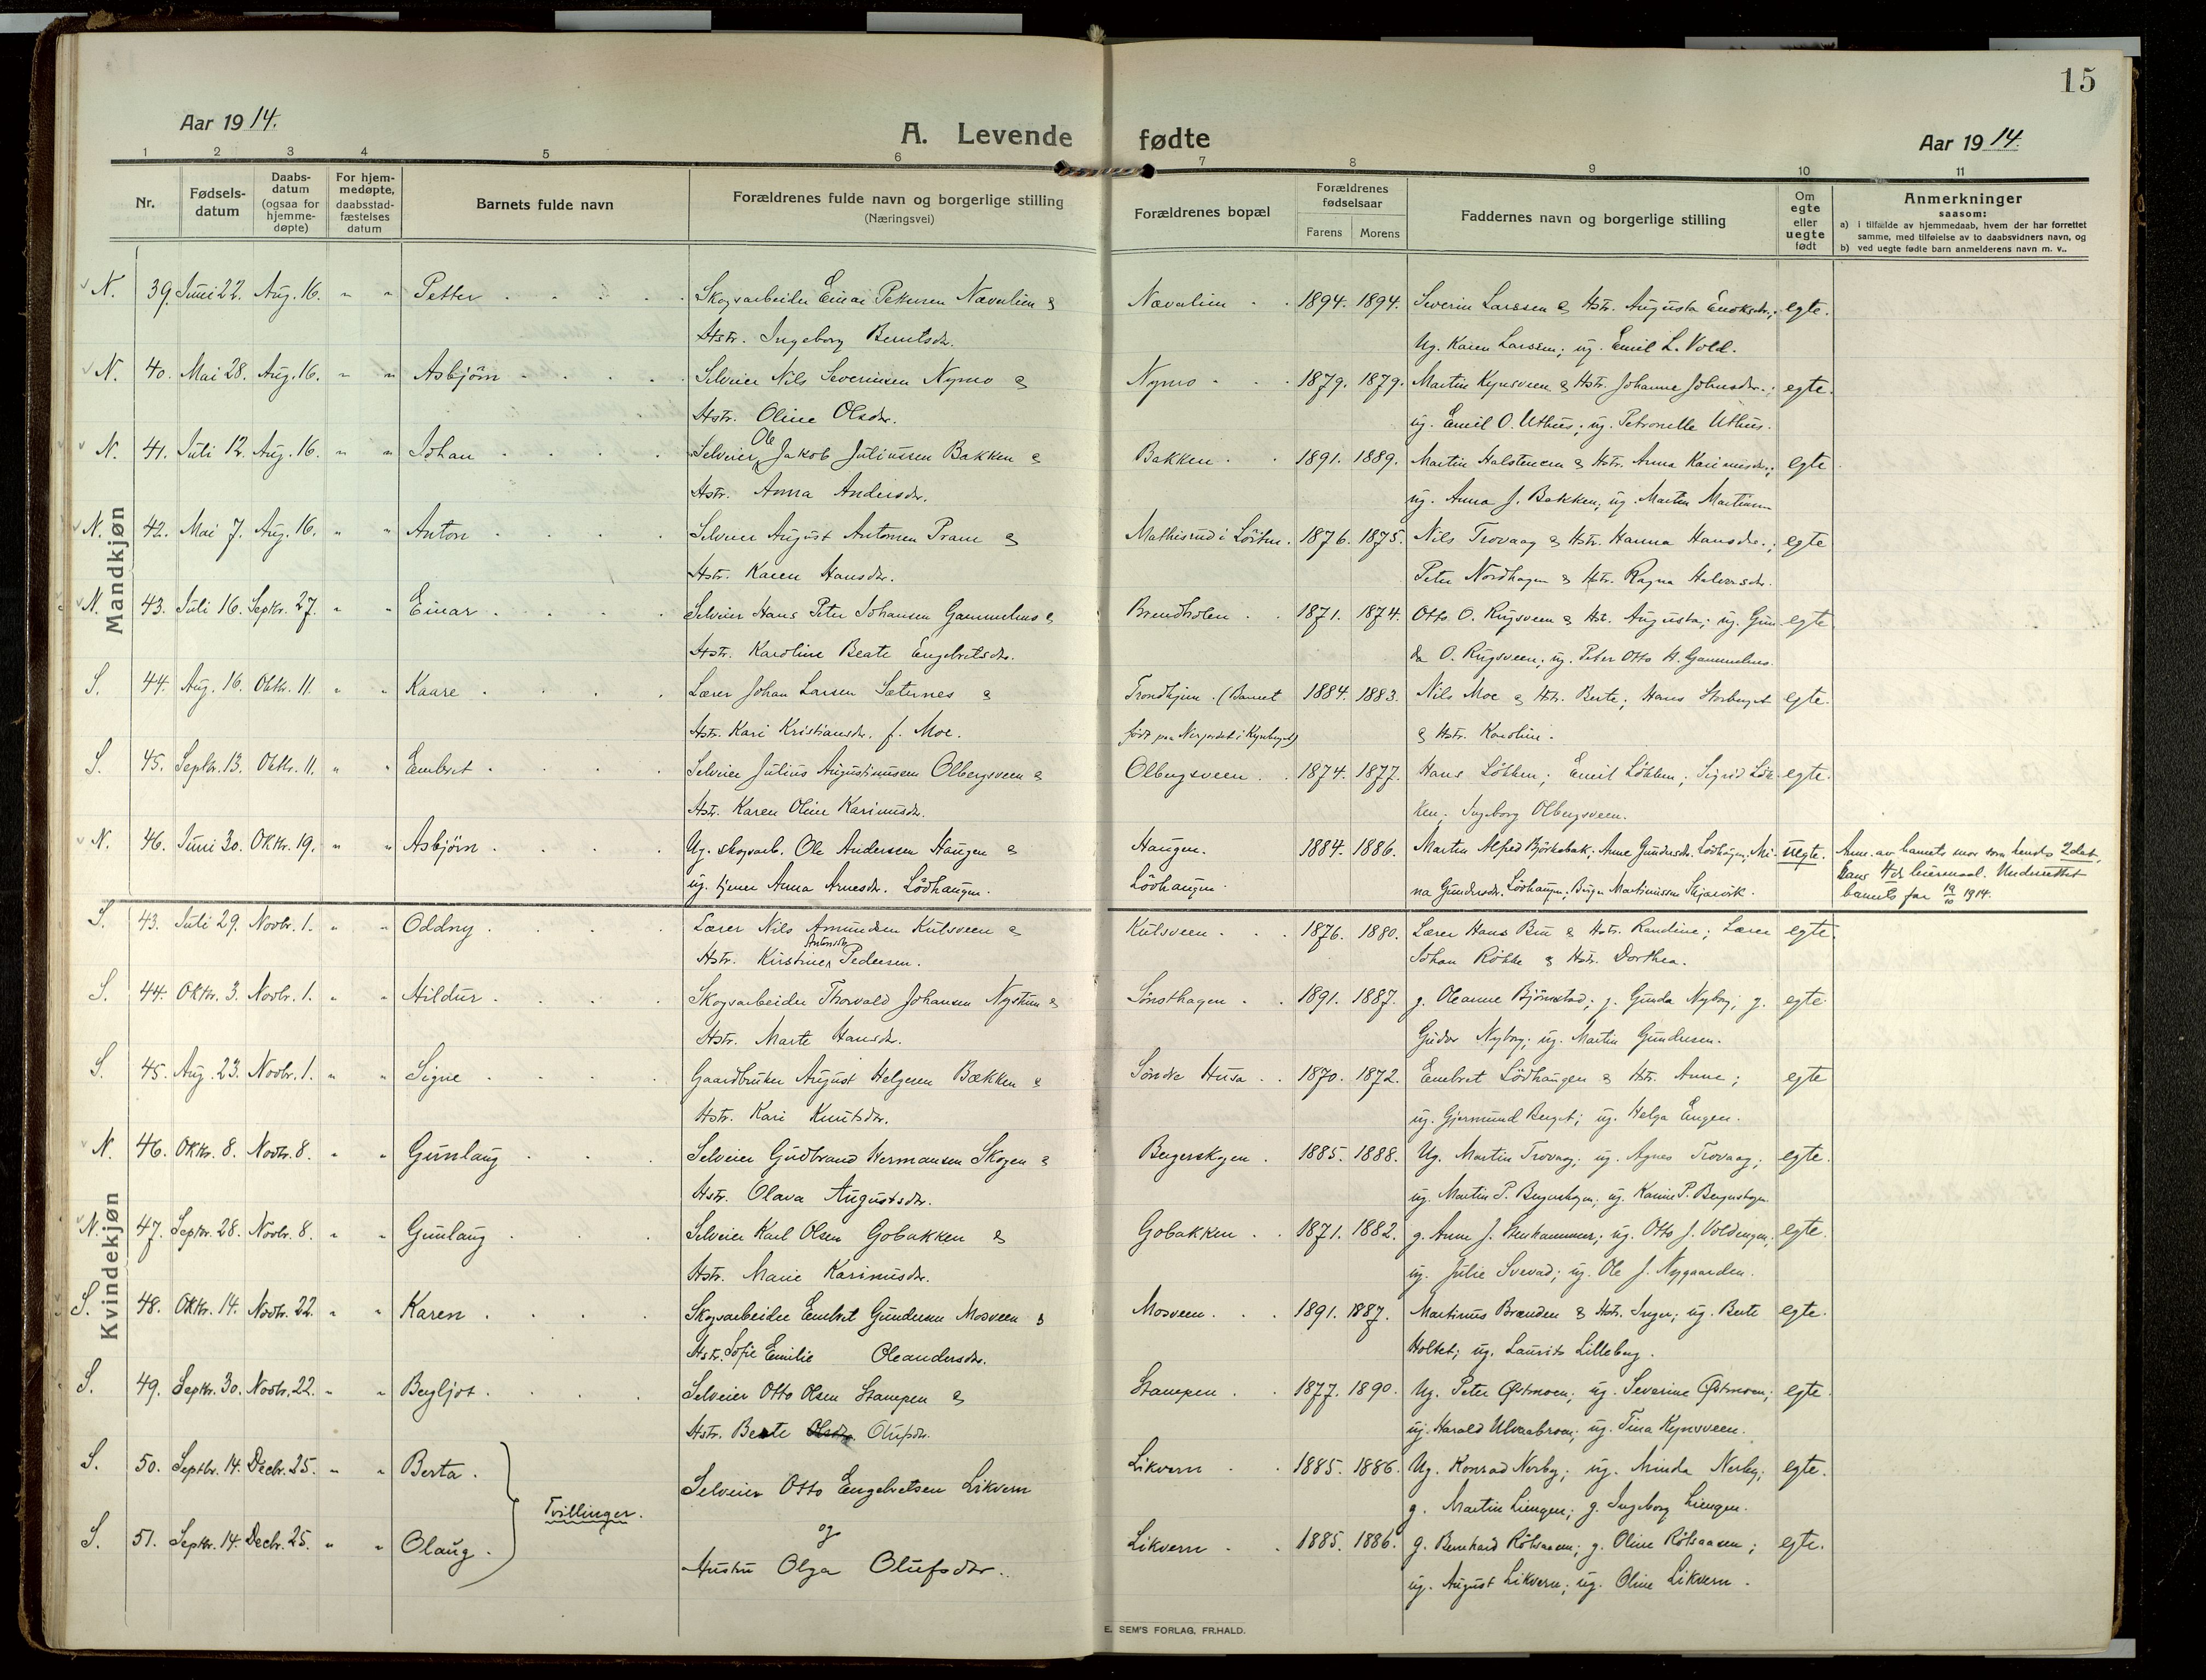 15
Aar 1914.
A. Levende fødte
Aar 1914.
1 2 3 4 5 6 7 8 9 10 11
Nr.
Fødsels-
datum
Daabs-
datum
(ogsaa for
hjemme-
døpte)
For hjem-
medøpte,
daabsstad-
fæstelses
datum
Barnets fulde navn
Forældrenes fulde navn og borgerlige stilling
(Næringsvei)
Forældrenes bopæl
Forældrenes
fødselsaar
Farens Morens
Faddernes navn og borgerlige stilling
Om
egte
eller
uegte
født
Anmerkninger
saasom:
a) i tilfælde av hjemmedaab, hvem der har forrettet
samme, med tilføielse av to daabsvidners navn, og
b) ved uegte fødte barn anmelderens navn m. v..
Mandkjøn
N. 39. Juni 22. Aug. 16. " " Petter Skogsarbeider Einar Petersen Nævalien & Nævalien 1894. 1894. Severin Larssen & Hstr. Augusta egte.
Hstr. Ingeborg Berntsdr. Ug. Karen Larssen; ug. Emil L. Vold.
N. 40. Mai 28. Aug. 16. " " Asbjörn Selveier Nils Severinsen Nymo & Nymo 1879. 1879. Martin Kynsveen & Hstr. Johanne Johnsdr.; egte.
Hstr. Oline Olsdr. ug. Emil O. Uthus; ug. Petronelle Uthus.
N. 41. Juli 12. Aug. 16. " " Johan Selveier Ole Jakob Juliussen Bakken & Bakken 1891. 1889. Martin Halstensen & Hstr. Anna Karinusdr.; egte
Hstr. Anna Andersdr. ug. Anna J. Bakken; ug. Martin
N. 42. Mai 7. Aug. 16. " " Anton Selveier August Antonsen Pram & Mathisrud i Löiten. 1876. 1875. Nils Trovaag & Hstr. Hanna Hansdr.; egte
Hstr. Karen Hansdr. Peter Nordhagen & Hstr. Ragna Halvorsdr.
N. 43. Juli 16. Septbr. 27. " " Einar Selveier Hans Peter Johansen Gammelhus & Brendholen 1871. 1874. Otto O. Rugsveen & Hstr. Augusta; ug. Gun- egte
Hstr. Karoline Beate Engebretsdr. da O. Rugsveen; ug. Peter Otto H. Gammelhus.
S. 44. Aug. 16. Oktbr. 11. " " Kaare Lærer Johan Larsen Sæternes & Trondhjem. (Barnet 1884. 1883. Nils Moe & Hstr. Berte; Hans Storberget egte.
Hstr. Kari Kristiansdr. f. Moe. født paa i Kynberget) & Hstr. Karoline.
S. 45. Septbr. 13. Oktbr. 11. " " Embret Selveier Julius Augustinusen Olbergsveen & Olbergsveen 1874. 1877. Hans Løkken; Emil Løkken; Sigrid Løk- egte.
Hstr. Karen Oline Karinusdr. ken; Ingeborg Olbergsveen.
N. 46. Juni 30. Oktbr. 19. " " Asbjörn Ug. skogsarb. Ole Anderssen Haugen & Haugen. 1884. 1886. Martin Alfred Björkebak; Anne Gundersdr. Lödhaugen; Mi- uegte. Anm. av barnets mor som hendes 2det,
ug. tjener Anna Arnesdr. Lödhaugen. Lödhaugen. na Gundersdr. Lödhaugen; Birger Martinussen Skjærvik. hans 4de leiermaal. Underrettet
barnets far 19/10 1914.
Kvindekjøn
S. 43. Juli 29. Novbr. 1. " " Oddny Lærer Nils Amundsen Kulsveen & Kulsveen 1876. 1880. Lærer Hans & Hstr. Randine; Lærer egte.
Hstr. Kirstine Antonette Pedersen. Johan Röhke & Hstr. Dorthea.
S. 44. Oktbr. 3. Novbr. 1. " " Hildur Skogsarbeider Thorvald Johansen Nystuen & Sønsthagen 1891. 1887. g. Oleanne Björnstad; g. Gunda Nyborg; g. egte
Hstr. Marte Hansdr. Nyborg; ug. Martin Gundersen.
S. 45. Aug. 23. Novbr. 1. " " Signe Gaardbruker August Helgesen Bækken & Søndre Husa 1870. 1872. Embret Lödhaugen & Hstr. Anne; egte
Hstr. Kari Knutsdr. ug. Gjermund Berget; ug. Helga Engen.
N. 46. Oktbr. 8. Novbr. 8. " " Gunlaug Selveier Gudbrand Hermansen Skogen & Bergerskogen 1885. 1888. Ug. Martin Trovaag; ug. Agnes Trovaag; egte.
Hstr. Olava Augustsdr. ug. Martin P. Bergerskogen; ug. Karine P. Bergerskogen
N. 47. Septbr. 28. Novbr. 8. " " Gunlaug Selveier Karl Olsen Gobakken & Gobakken 1871. 1882. g. Anne J. Stenhammer; ug. Otto J. Voldengen; egte.
Hstr. Marie Karinusdr. ug. Julie Svevad; ug. Ole J. Nygaarden.
S. 48. Oktbr. 14. Novbr. 22. " " Karen Skogsarbeider Embret Gundersen Mosveen & Mosveen 1891. 1887. Martinus Brænden & Hstr. Inger; ug. Berte egte.
Hstr. Sofie Emilie Oleandersdr. Holtet; ug. Laurits Lilleberg.
S. 49. Septbr. 30. Novbr. 22. " " Bergljot Selveier Otto Olsen Stampen & Stampen 1877. 1890. Ug. Peter Østmoen; ug. Severine Østmoen; egte
Hstr. Berte Olufsdr. ug. Harald Ulvaabroen; ug. Tina Kynsveen.
S. 50. Septbr. 14. Decbr. 25. " " Berta Selveier Otto Engebretsen Likvern Likvern 1885. 1886. Ug. Konrad Nerby; ug. Minda Nerby; egte.
Tvillinger. og g. Martin Liengen; g. Ingeborg Liengen.
S. 51. Septbr. 14. Decbr. 25. " " Olaug Hustru Olga Olufsdr. Likvern 1885. 1886. g. Bernhard Rötsaasen; g. Oline Rötsaasen; egte.
ug. August Likvern; ug. Oline Likvern.
E. SEM'S FORLAG, FR.HALD.